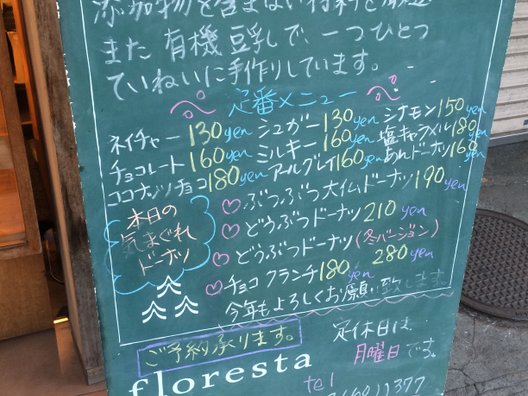 添加物を含まない材料を厳選
また有機豆乳で、一つひとつ
ていねいに手作りしています。
定番メニュー
ネイチャー 130yen シュガー 130yen シナモン 150yen
チョコレート 160yen ミルキー 160yen 塩キャラメル 180yen
ココナッツチョコ 180yen アールグレイ 160yen あんドーナツ 160yen
本日の
気まぐれ
ドーナツ
ぶつぶつ大イムドーナツ 190yen
どうぶつドーナツ 210yen
どうぶつドーナツ(冬バージョン)
280yen
チョコクランチ 180yen
今年もよろしくお願い致します
ご予約承ります。
定休日は
月曜日です。
floresta
tel